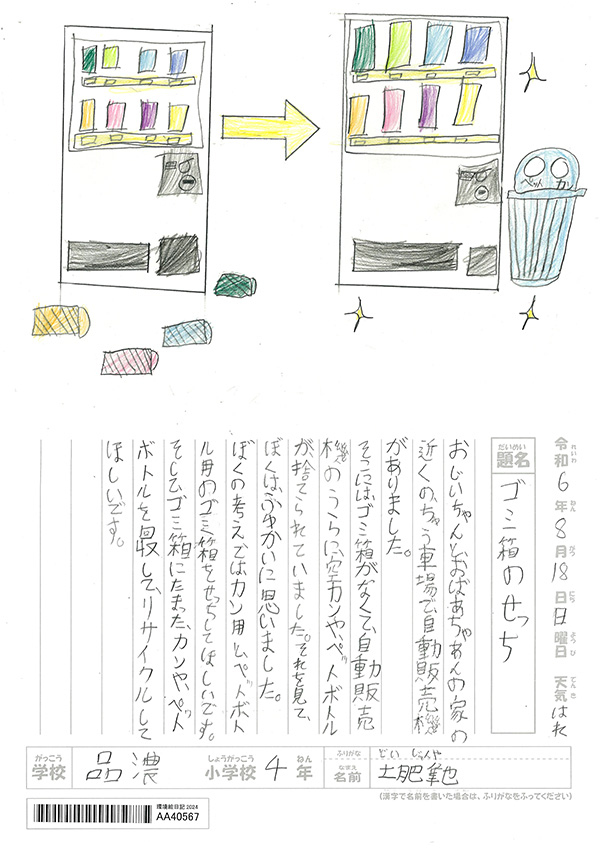 ペット
カン
令和6年8月18日日曜日 天気はれ
れいわ ねん がつ にち ようび てんき
題名 ゴミ箱のせっち
だいめい
おじいちゃんとおばあちゃあんの家の
近くの、ちゅう車場で、自動販売機
がありました。
そこには、ゴミ箱がなくて、自動販売
機のうらに、空カンや、ペットボトル
が、捨てられていました。それを見て、
ぼくは、ふゆかいに思いました。
ぼくの考えではカン用と、ペットボト
ル用のゴミ箱をせっちしてほしいです。
そしてゴミ箱にたまった、カンや、ペット
ボトルを収して、リサイクルして
ほしいです。
がっこう しょうがっこう ねん ふりがな どい じゅんや
学校 品濃 小学校 4年 なまえ 名前 土肥
(漢字で名前を書いた場合は、ふりがなをふってください)
環境絵日記2024
AA40567